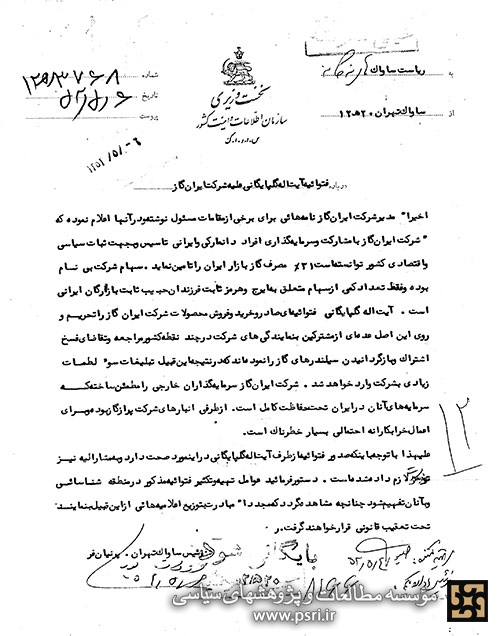 به ریاست ساواک
از ساواک تهران ۲۰ هـ ۱۲
نخست وزیری
سازمان اطلاعات و امنیت کشور
س.ا.و.ا.ک
شماره
تاریخ
پیوست
درباره فتوائیه آیت اله گلپایگانی علیه شرکت ایران گاز
اخیرا" مدیر شرکت ایران گاز نامه هائی برای برخی از مقامات مسئول نوشته و در آنها اعلام نموده که
" شرکت ایران گاز با مشارکت و سرمایه گذاری افراد دانمارکی و ایرانی تاسیس و بجهت ثبات سیاسی
و اقتصادی کشور توانسته است ۳۱٪ مصرف گاز بازار ایران را تامین نماید . سهام شرکت بی نام
بوده و فقط تعداد کمی از سهام متعلق به ایرج و هرمز ثابت فرزندان حبیب ثابت بازرگان ایرانی
است . آیت اله گلپایگانی فتوائیه ای صادر و خرید و فروش محصولات شرکت ایران گاز را تحریم و
روی این اصل عده ای از مشترکین بنمایندگی های شرکت در چند نقطه کشور مراجعه و تقاضای فسخ
اشتراک و بازگردانیدن سیلندرهای گاز را نموده اند که در نتیجه این قبیل تبلیغات سو" لطمات
زیادی بشرکت وارد خواهد شد . شرکت ایران گاز سرمایه گذاران خارجی را مطمئن ساخته که
سرمایه های آنان در ایران تحت حفاظت کامل است . از طرفی انبارهای شرکت پر از گاز بوده و برای
اعمال خرابکارانه احتمالی بسیار خطرناک است .
علیهذا با توجه باینکه صدور فتوائیه از طرف آیت اله گلپایگانی در اینمورد صحت دارد و به مشارالیه نیز
لازم داده شده است . دستور فرمائید عوامل تهیه و تکثیر فتوائیه مذکور در منطقه شناسائی
و بآنان تفهیم شود چنانچه مشاهده گردد که مجددا" مبادرت بتوزیع اعلامیه هائی از این قبیل بنمایند
تحت تعقیب قانونی قرار خواهند گرفت .
رئیس ساواک تهران . پرنیان فر
بایگانی شود
۱۲
موسسه مطالعات و پژوهشهای سیاسی
www.psri.ir